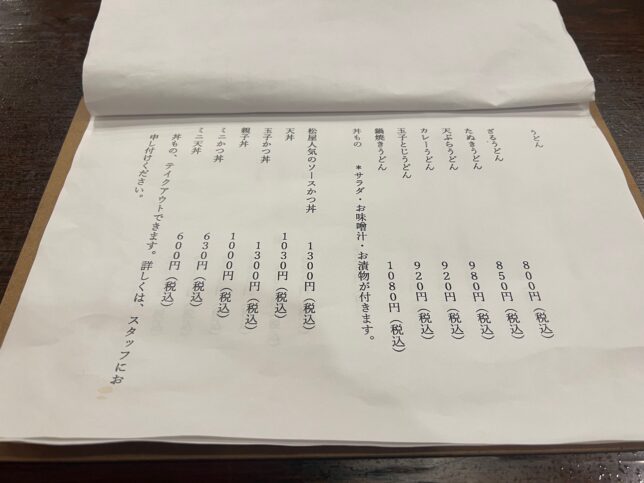 うどん
ざるうどん　800円（税込）
たぬきうどん　850円（税込）
天ぷらうどん　980円（税込）
カレーうどん　920円（税込）
玉子とじうどん　920円（税込）
鍋焼きうどん　1080円（税込）
丼もの　＊サラダ・お味噌汁・お漬物が付きます。
松屋人気のソースかつ丼　1300円（税込）
天丼　1030円（税込）
玉子かつ丼　1300円（税込）
親子丼　1000円（税込）
ミニかつ丼　630円（税込）
ミニ天丼　600円（税込）
丼もの、テイクアウトできます。詳しくは、スタッフにお
申し付けください。